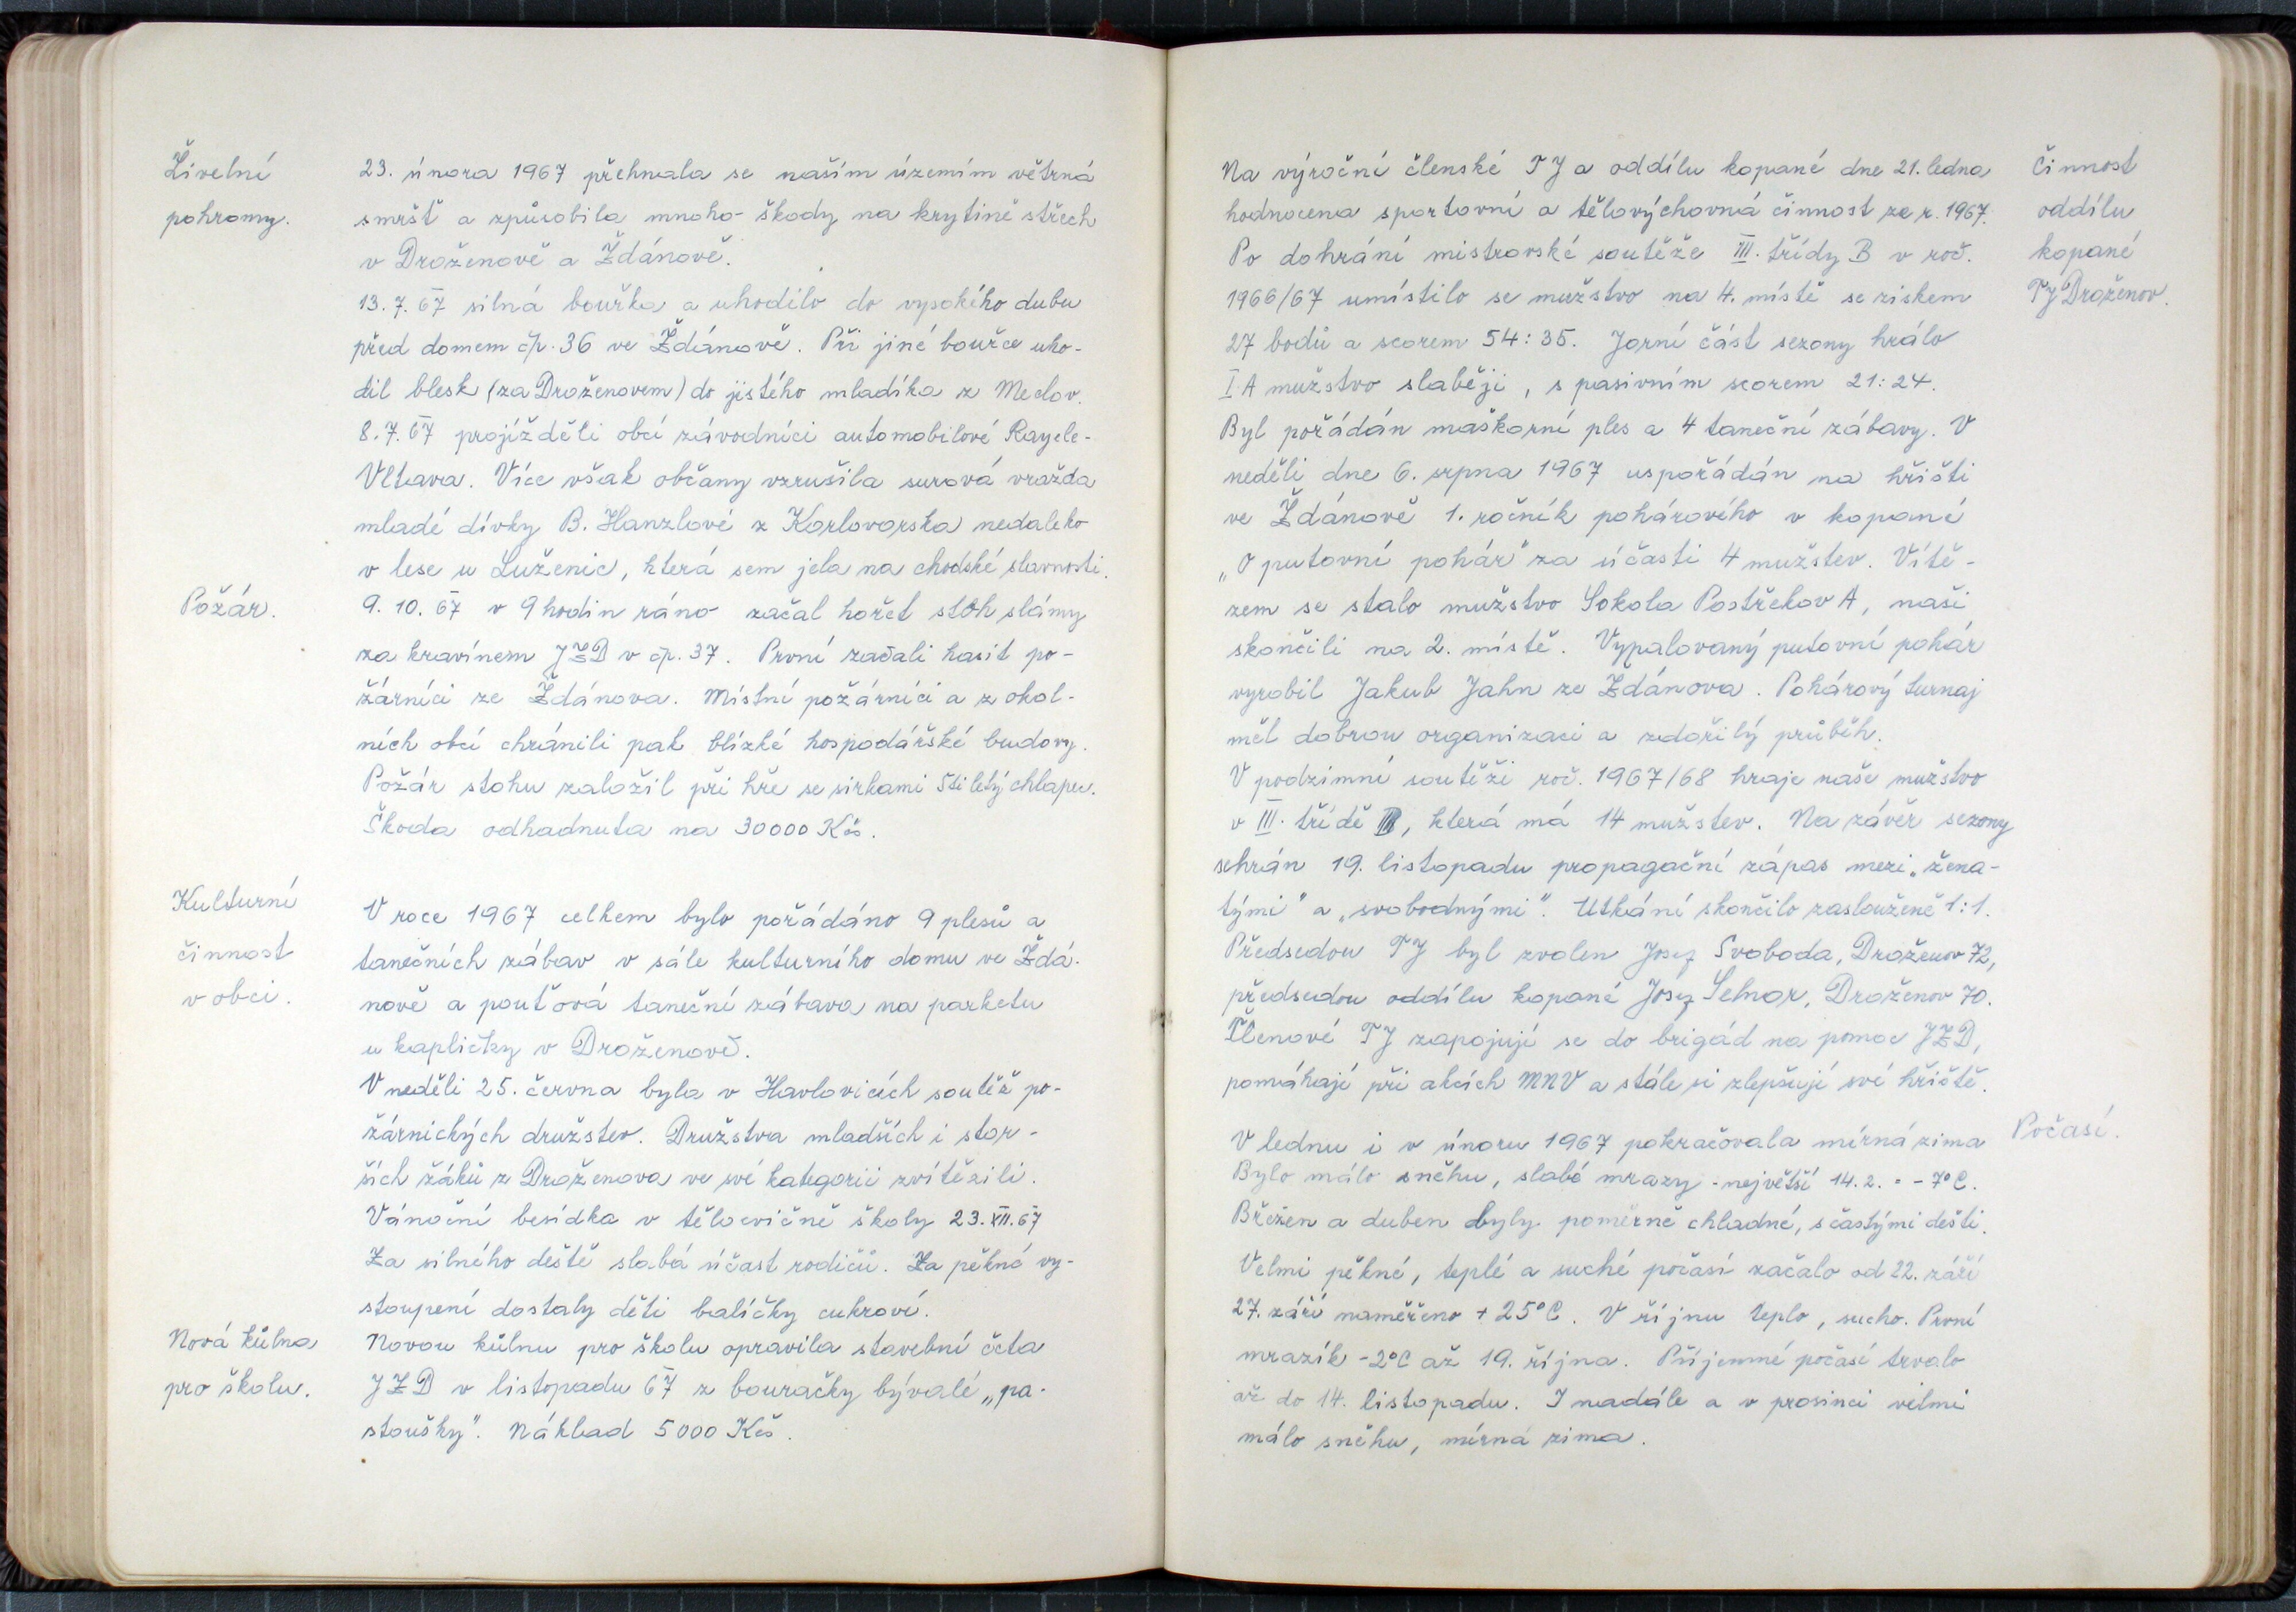 Živelní
pohromy.
23. února 1967 přehnala se naším územím větrná
smršť a způsobila mnoho škody na krytině střech
v Draženově a Ždánově.
13. 7. 67 silná bouřka a uhodilo do vysokého dubu
před domem čp. 36 ve Ždánově. Při jiné bouřce uho-
dil blesk (za Draženovem) do jistého mladíka z Meclov.
8. 7. 67 projížděli obcí závodníci automobilové Rayele-
Vltava. Více však občany vzrušila surová vražda
mladé dívky B. Hanzlové z Karlovarska nedaleko
v lese u Luženic, která sem jela na chodské slavnosti.
Požár.
9. 10. 67 v 9 hodin ráno začal hořet stoh slámy
za kravínem JZD v čp. 37. První začali hasit po-
žárníci ze Ždánova. Místní požárníci a z okol-
ních obcí chránili pak blízké hospodářské budovy.
Požár stohu založil při hře se sirkami 5ti letý chlapec.
Škoda odhadnuta na 30000 Kčs.
Kulturní
činnost
v obci.
V roce 1967 celkem bylo pořádáno 9 plesů a
tanečních zábav v sále kulturního domu ve Ždá-
nově a pouťová taneční zábava na parketu
u kapličky v Draženově.
V neděli 25. června byla v Havlovicích soutěž po-
žárnických družstev. Družstva mladších i star-
ších žáků z Draženova ve své kategorii zvítězili.
Vánoční besídka v tělocvičně školy 23. XII. 67
Za silného deště slabá účast rodičů. Za pěkné vy-
stoupení dostaly děti balíčky cukroví.
Nová kůlna
pro školu.
Novou kůlnu pro školu opravila stavební četa
JZD v listopadu 67 z bouračky bývalé „pa-
stoušky". Náklad 5000 Kčs.
Na výroční členské TJ a oddílu kopané dne 21. ledna
hodnocena sportovní a tělovýchovná činnost za r. 1967.
Po dohrání mistrovské soutěže III. třídy B v roč.
1966/67 umístilo se mužstvo na 4. místě se ziskem
27 bodů a scorem 54:35. Jarní část sezony hrálo
I. A mužstvo slaběji, s pasivním scorem 21:24.
Byl pořádán maškarní ples a 4 taneční zábavy. V
neděli dne 6. srpna 1967 uspořádán na hřišti
ve Ždánově 1. ročník pohárového v kopané
„O putovní pohár" za účasti 4 mužstev. Vítě-
zem se stalo mužstvo Sokola Postřekov A, naši
skončili na 2. místě. Vypalovaný putovní pohár
vyrobil Jakub Jahn ze Ždánova. Pohárový turnaj
měl dobrou organizaci a zdařilý průběh.
V podzimní soutěži roč. 1967/68 hraje naše mužstvo
v III. třídě, která má 14 mužstev. Na závěr sezony
sehrán 19. listopadu propagační zápas mezi „žena-
tými" a „svobodnými". Utkání skončilo zaslouženě 1:1.
Předsedou TJ byl zvolen Josef Svoboda, Draženov 72,
předsedou oddílu kopané Josef Selnar, Draženov 70.
Členové TJ zapojují se do brigád na pomoc JZD,
pomáhají při akcích MNV a stále si zlepšují své hřiště.
činnost
oddílu
kopané
TJ Draženov.
V lednu i v únoru 1967 pokračovala mírná zima
Bylo málo sněhu, slabé mrazy - největší 14. 2. - - 7°C.
Březen a duben byly poměrně chladné, s častými dešti.
Velmi pěkné, teplé a suché počasí začalo od 22. září
27. září naměřeno + 25°C. V říjnu teplo, sucho. První
mrazík -2°C až 19. října. Příjemné počasí trvalo
až do 14. listopadu. I nadále a v prosinci velmi
málo sněhu, mírná zima.
Počasí.